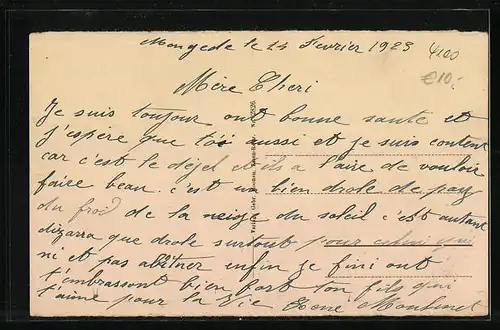 Mengede le 14 Fevrier 1923
4100
€10.-
Mère Cheri
Je suis toujour ont bonne sante et
j'espère que toi aussi et je suis content
car c'est le dégel et il a l'aire de vouloir
faire beau. c'est un bien drole de pay
du froid de la neige du soleil c'est autant
bizarra que drole surtout pour celui qui
ni et pas abituer enfin je fini ont
t'embrassont bien fort ton fils qui
t'aime pour la vie René